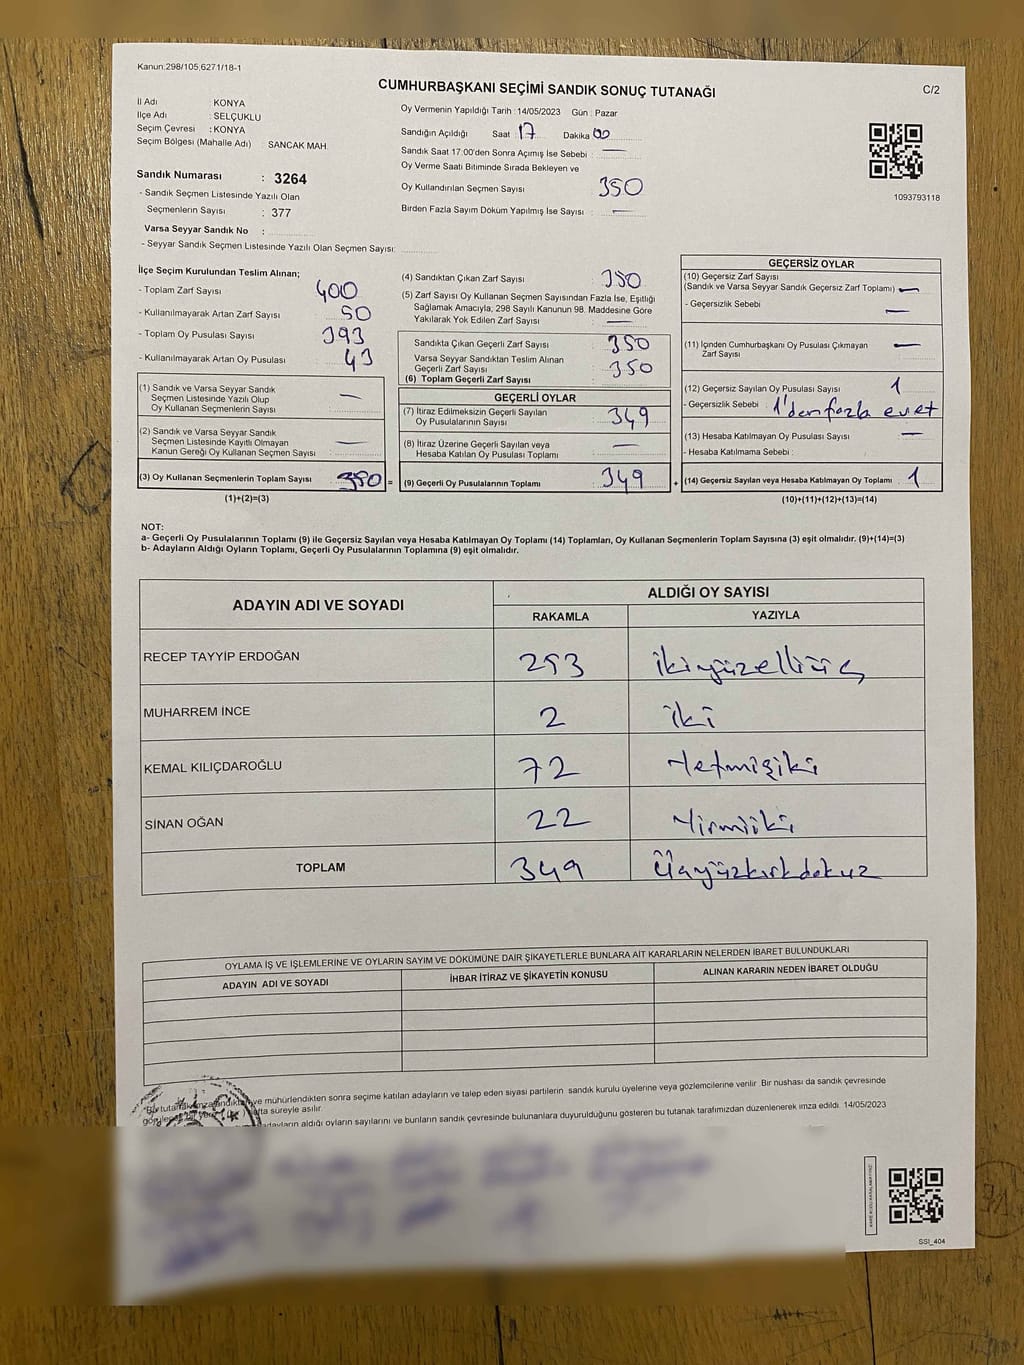 Kanun:298/105,6271/18-1
CUMHURBAŞKANI SEÇİMİ SANDIK SONUÇ TUTANAĞI
C/2
İl Adı : KONYA
İlçe Adı : SELÇUKLU
Seçim Çevresi : KONYA
Seçim Bölgesi (Mahalle Adı) SANCAK MAH.
Sandık Numarası : 3264
- Sandık Seçmen Listesinde Yazılı Olan
Seçmenlerin Sayısı : 377
Varsa Seyyar Sandık No :
- Seyyar Sandık Seçmen Listesinde Yazılı Olan Seçmen Sayısı:
Oy Vermenin Yapıldığı Tarih : 14/05/2023 Gün : Pazar
Sandığın Açıldığı Saat : 17 Dakika 00
Sandık Saat 17:00'den Sonra Açımış İse Sebebi : —
Oy Verme Saati Bitiminde Sırada Bekleyen ve
Oy Kullandırılan Seçmen Sayısı 350
Birden Fazla Sayım Döküm Yapılmış İse Sayısı : —
1093793118
İlçe Seçim Kurulundan Teslim Alınan;
- Toplam Zarf Sayısı 400
- Kullanılmayarak Artan Zarf Sayısı 50
- Toplam Oy Pusulası Sayısı 393
- Kullanılmayarak Artan Oy Pusulası 43
(1) Sandık ve Varsa Seyyar Sandık
Seçmen Listesinde Yazılı Olup
Oy Kullanan Seçmenlerin Sayısı —
(2) Sandık ve Varsa Seyyar Sandık
Seçmen Listesinde Kayıtlı Olmayan
Kanun Gereği Oy Kullanan Seçmen Sayısı : —
(3) Oy Kullanan Seçmenlerin Toplam Sayısı : 350 =
(1)+(2)=(3)
(4) Sandıktan Çıkan Zarf Sayısı : 350
(5) Zarf Sayısı Oy Kullanan Seçmen Sayısından Fazla İse, Eşitliği
Sağlamak Amacıyla, 298 Sayılı Kanunun 98. Maddesine Göre
Yakılarak Yok Edilen Zarf Sayısı : —
Sandıkta Çıkan Geçerli Zarf Sayısı : 350
Varsa Seyyar Sandıktan Teslim Alınan
Geçerli Zarf Sayısı : 350
(6) Toplam Geçerli Zarf Sayısı
GEÇERLİ OYLAR
(7) İtiraz Edilmeksizin Geçerli Sayılan
Oy Pusulalarının Sayısı : 349
(8) İtiraz Üzerine Geçerli Sayılan veya
Hesaba Katılan Oy Pusulası Toplamı : —
(9) Geçerli Oy Pusulalarının Toplamı : 349 +
GEÇERSİZ OYLAR
(10) Geçersiz Zarf Sayısı
(Sandık ve Varsa Seyyar Sandık Geçersiz Zarf Toplamı) : —
- Geçersizlik Sebebi —
(11) İçinden Cumhurbaşkanı Oy Pusulası Çıkmayan
Zarf Sayısı —
(12) Geçersiz Sayılan Oy Pusulası Sayısı 1
- Geçersizlik Sebebi : 1'den fazla evet
(13) Hesaba Katılmayan Oy Pusulası Sayısı : —
- Hesaba Katılmama Sebebi :
(14) Geçersiz Sayılan veya Hesaba Katılmayan Oy Toplamı : 1
(10)+(11)+(12)+(13)=(14)
NOT:
a- Geçerli Oy Pusulalarının Toplamı (9) ile Geçersiz Sayılan veya Hesaba Katılmayan Oy Toplamı (14) Toplamları, Oy Kullanan Seçmenlerin Toplam Sayısına (3) eşit olmalıdır. (9)+(14)=(3)
b- Adayların Aldığı Oyların Toplamı, Geçerli Oy Pusulalarının Toplamına (9) eşit olmalıdır.
ADAYIN ADI VE SOYADI
ALDIĞI OY SAYISI
RAKAMLA YAZIYLA
RECEP TAYYİP ERDOĞAN 253 ikiyüzelliüç
MUHARREM İNCE 2 iki
KEMAL KILIÇDAROĞLU 72 Yetmişiki
SİNAN OĞAN 22 Yirmiiki
TOPLAM 349 Üçyüzkırkdokuz
OYLAMA İŞ VE İŞLEMLERİNE VE OYLARIN SAYIM VE DÖKÜMÜNE DAİR ŞİKAYETLERLE BUNLARA AİT KARARLARIN NELERDEN İBARET BULUNDUKLARI
ADAYIN ADI VE SOYADI İHBAR İTİRAZ VE ŞİKAYETİN KONUSU ALINAN KARARIN NEDEN İBARET OLDUĞU
ve mühürlendikten sonra seçime katılan adayların ve talep eden siyasi partilerin sandık kurulu üyelerine veya gözlemcilerine verilir. Bir nushası da sandık çevresinde
süreyle asılır.
aldığı oyların sayılarını ve bunların sandık çevresinde bulunanlara duyurulduğunu gösteren bu tutanak tarafımızdan düzenlenerek imza edildi. 14/05/2023
SSI_404